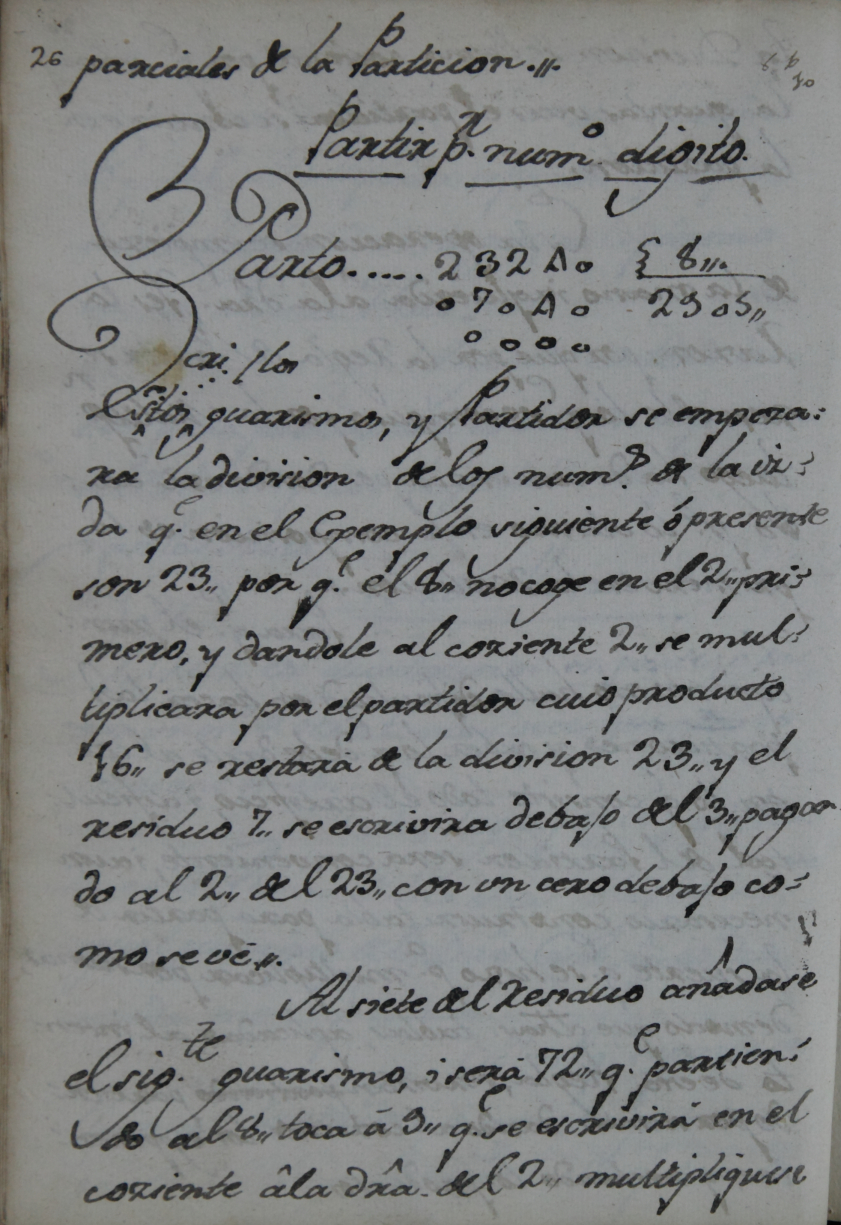 26 parciales de la Particion.,,.
Partir p.r num.o digito.
Parto..... 23240 { 8,,.
07040 2905,,
0000
Escri. /los
Estos guarismos, y Partidor se empeza:
ra la division de los num.s de la iz:
da q.e en el Exemplo siguiente ó presente
son 23,, por q.e el 8,, no coge en el 2,, pri:
mero, y dandole al coziente 2,, se mul:
tiplicara por el partidor cuio producto
16,, se restará de la division 23,, y el
residuo 7,, se escrivira debajo del 3,, pagan
do al 2,, del 23,, con un cero debajo co:
mo se vé,,.
Al siete del Residuo añadase
el sig.te guarismo, i será 72,, q.e partien:
do al 8,, toca á 9,, q.e se escrivirá en el
coziente âla dr̃a. del 2,, multipliquese